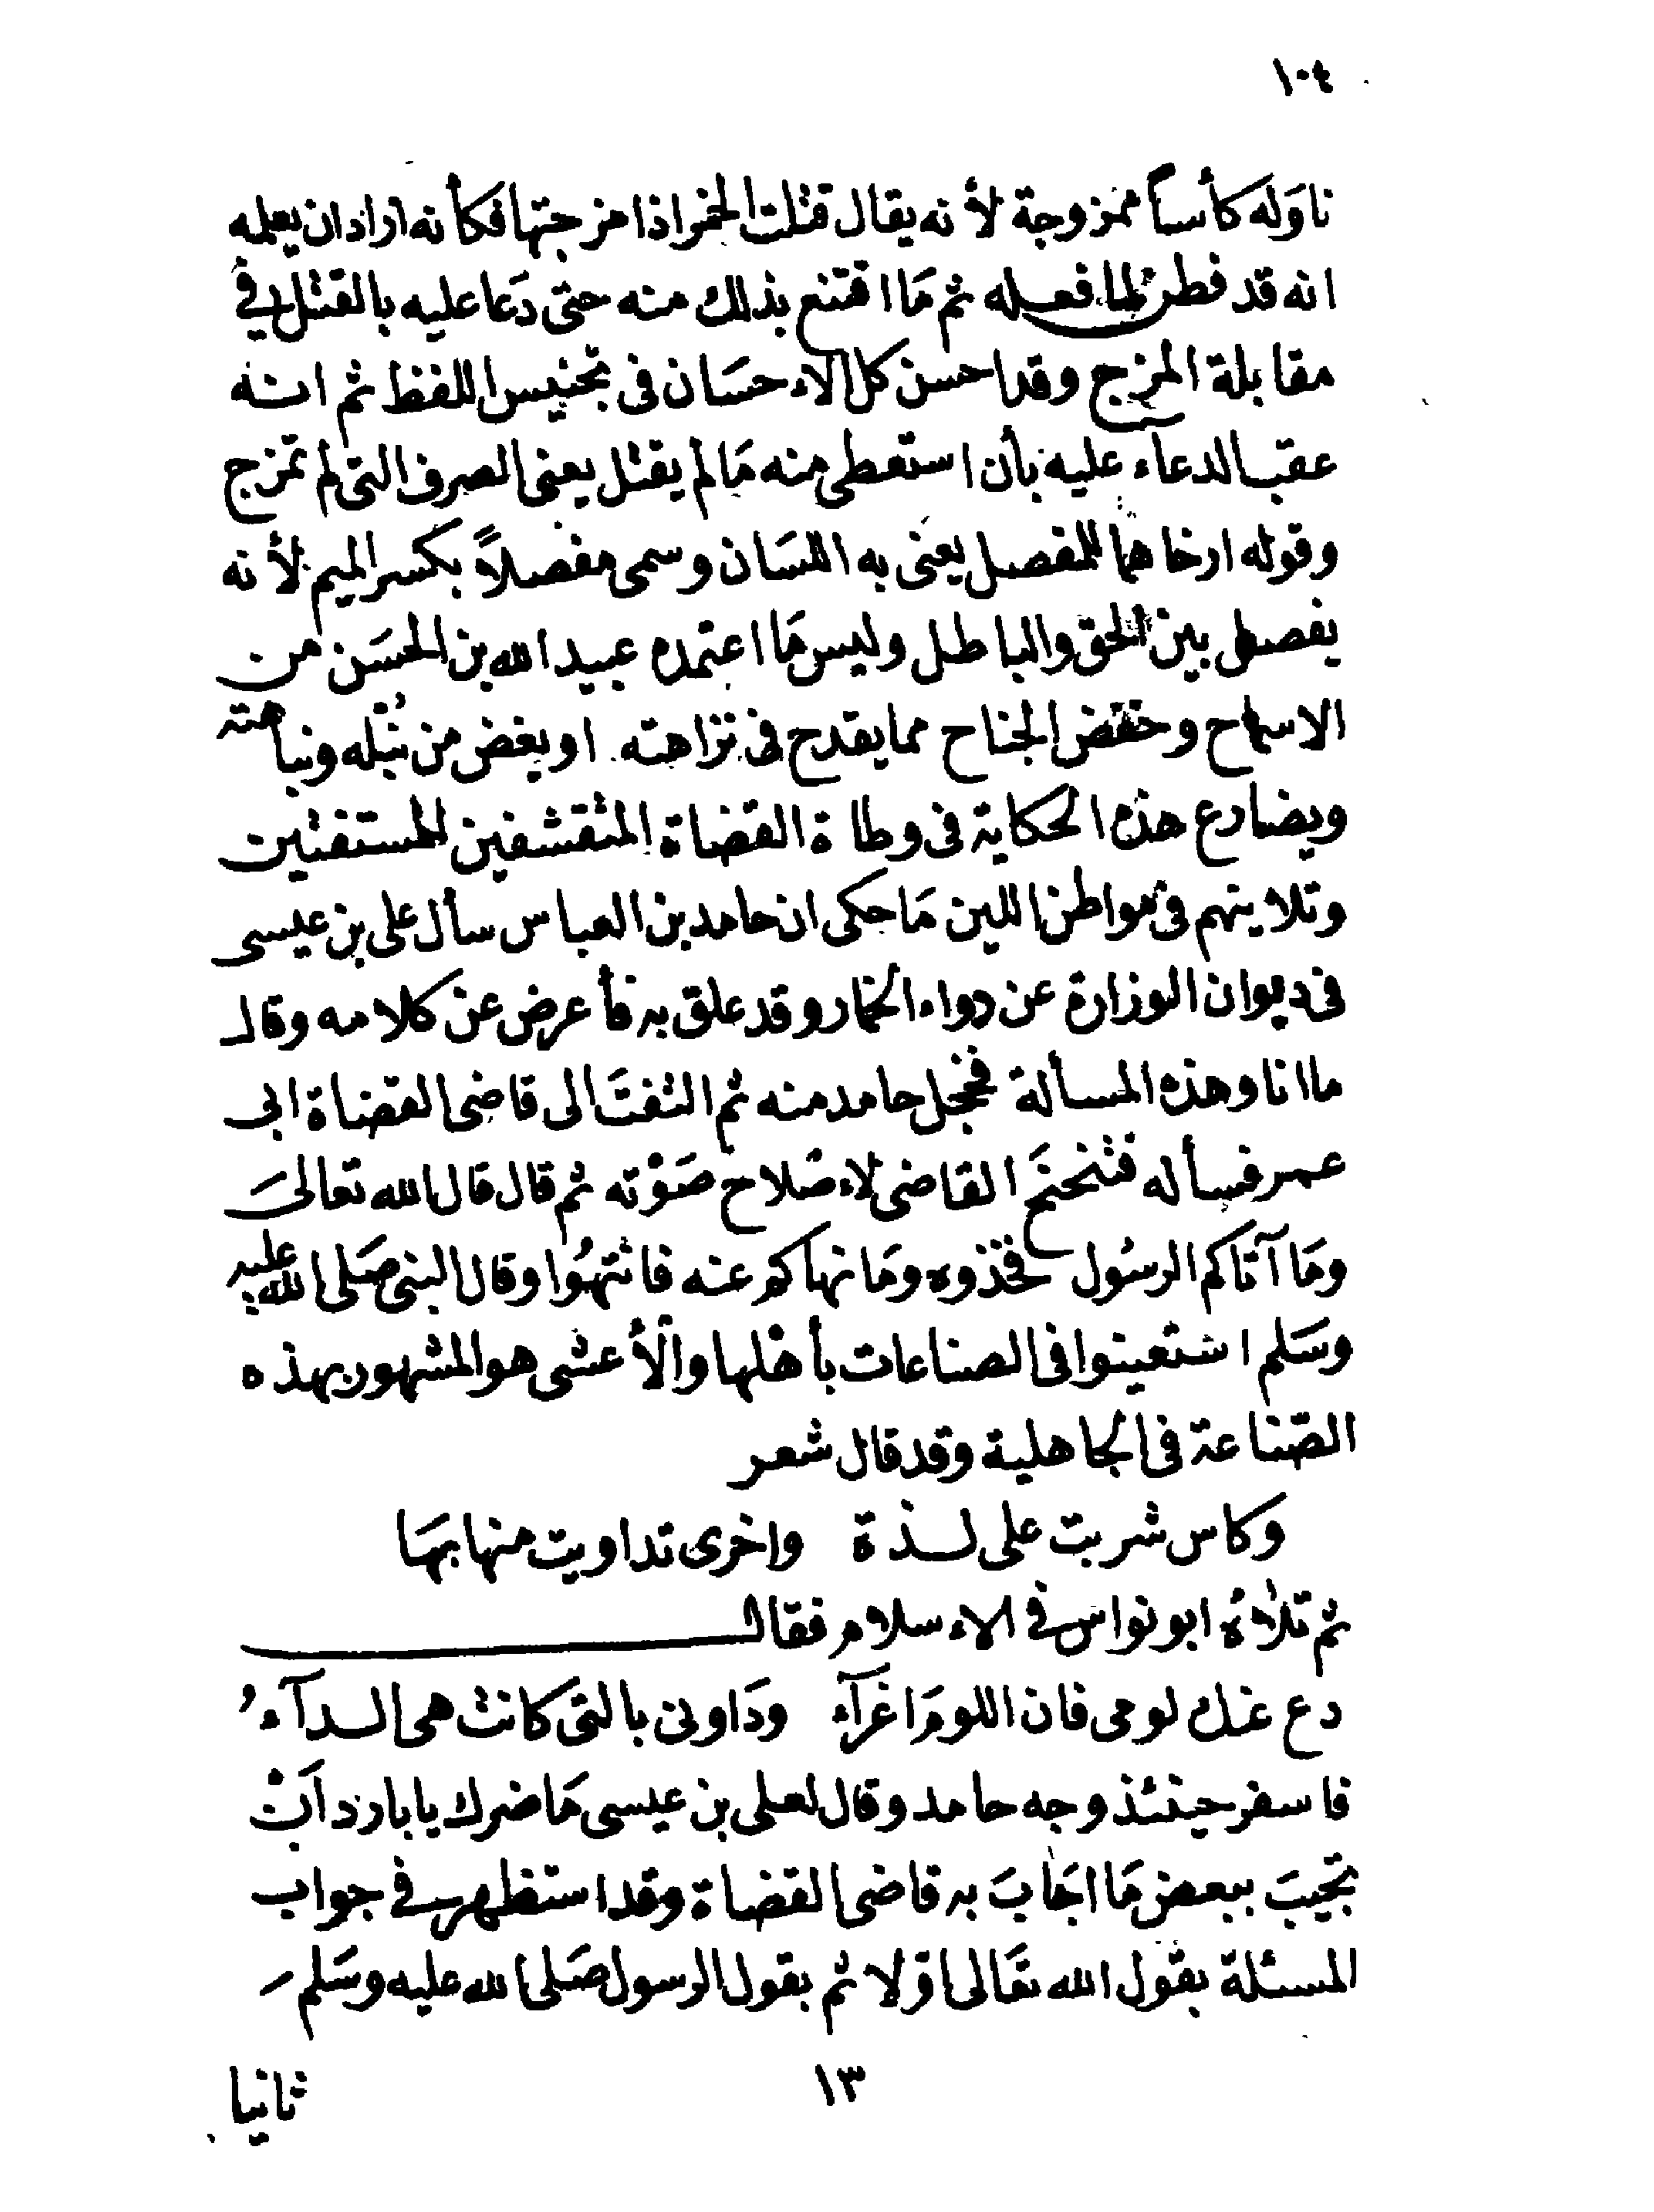 ١٠٤
ناوَله كأساً ممزوجة لأنه يقال قتلت الخمر اذا مزجتها فكأنه اراد ان يعلمه
انه قد فطن لما فعله ثم مَا اقتنع بذلك منه حتى دَعا عليه بالقتل في
مقابلة المزج وقد احسن كل الاءحسَان فى تجنيس اللفظ ثم انه
عقب الدعاء عليه بأن استعطى منه مَا لم يقتل يعنى الصرف التى لم تمزج
وقوله ارخاهما للمفصل يعنى به اللسَان وسمى مفصلاً بكسر الميم لأنه
يفصل بين الحق والباطل وليس مَا اعتمده عبيد الله بن الحسَن من
الاسماح وخفض الجناح مما يقدح فى نزاهته او يغض من نُبْله ونباهته
ويضارع هذه الحكاية فى وطاة القضاة المتقشفين للمستفتين
وتلاينهم فى مواطن اللين مَا حكى ان حامد بن العباس سأل على بن عيسى
فى ديوان الوزارة عن دواء الخمار وقد علق به فأعرض عن كلامه وقال
ما انا وهذه المسألة فخجل حامد منه ثم التفتَ الى قاضى القضاة ابى
عمر فسأله فتنحنحَ القاضى لاءصْلاح صَوْته ثم قال قال الله تعالىَ
ومَا آتاكم الرسُول فخذوه ومَا نهاكم عنه فانتهُوا وقال النبى صَلى الله عليه
وسَلم استعينوا فى الصناعات بأهْلها والأعشى هو المشهور بهذه
الصّناعة فى الجاهلية وقد قال شعر
وكاس شربت على لذة واخرى تداويت منها بهَا
ثم تلاهُ ابو نواس في الاءسلام فقال
دع عنك لومى فان اللومَ اغرَآء ودَاونى بالتى كانت هى الدآءُ
فاسفر حينئذ وجه حامد وقال لعلى بن عيسى مَا ضرك يا بارد اَنْ
تجيبَ ببعض مَا اجَابَ به قاضى القضاة وقد استظهر في جواب
المسئلة بقول الله تعَالى اوّلا ثم بقول الرسول صَلى الله عليه وسَلم
١٣
ثانيا